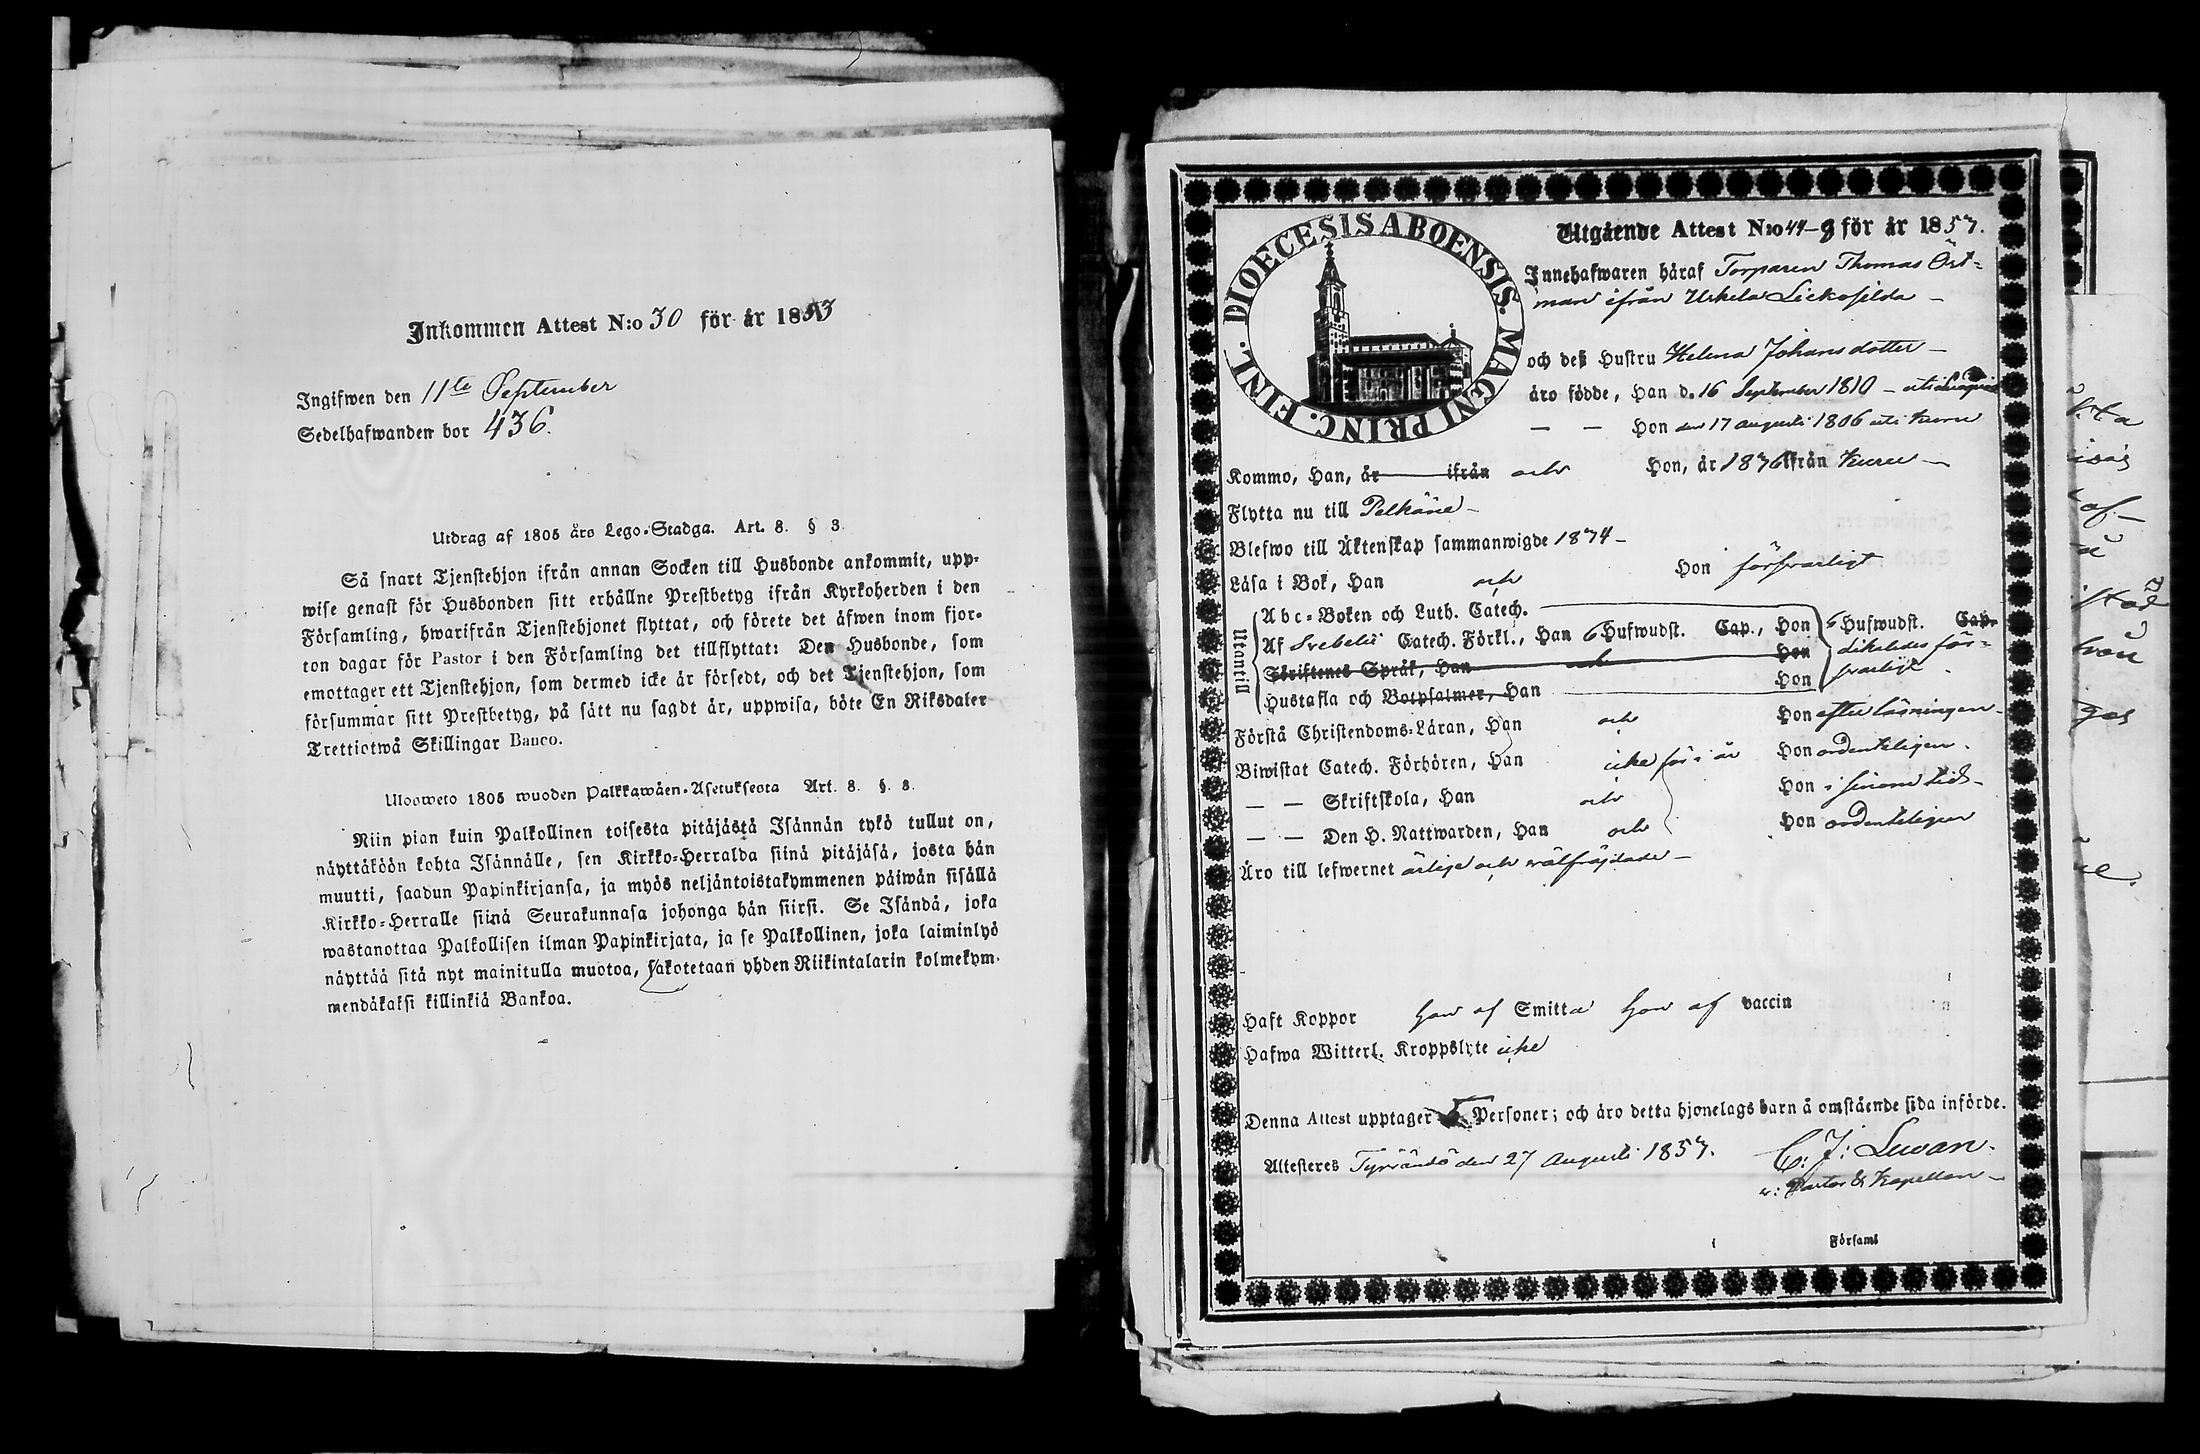 Inkommen Attest N:o 30 för år 1853
Ingifwen den 11te September
Sedelhafwanden bor 436.
Utdrag af 1805 års Lego-Stadga. Art. 8. § 3.
Så snart Tjenstehjon ifrån annan Socken till Husbonde ankommit, upp-
wise genast för Husbonden sitt erhållne Prestbetyg ifrån Kyrkoherden i den
Församling, hwarifrån Tjenstehjonet flyttat, och förete det äfwen inom fjor-
ton dagar för Pastor i den Församling det tillflyttat: Den Husbonde, som
emottager ett Tjenstehjon, som dermed icke är försedt, och det Tjenstehjon, som
försummar sitt Prestbetyg, på sätt nu sagdt är, uppwisa, böte En Riksdaler
Trettiotwå Skillingar Banco.
Ulosweto 1805 wuoden Palkkawäen-Asetuksesta Art. 8. §. 3.
Niin pian kuin Palkollinen toisesta pitäjästä Isännän tykö tullut on,
näyttäköön kohta Isännälle, sen Kirkko-Herralda siinä pitäjäsä, josta hän
muutti, saadun Papinkirjansa, ja myös neljäntoistakymmenen päiwän sisällä
Kirkko-Herralle siinä Seurakunnasa johonga hän siirsi. Se Isändä, joka
wastanottaa Palkollisen ilman Papinkirjata, ja se Palkollinen, joka laiminlyö
näyttää sitä nyt mainitulla muotoa, sakotetaan yhden Riikintalarin kolmekym-
mendäkaksi killinkiä Bankoa.
DIOECESIS ABOENSIS. MAGNI PRINC. FINL.
Utgående Attest N:o 44-8 för år 1857.
Innehafwaren häraf Torparen Thomas Öst-
man ifrån Uskela Lickosilda
och deß Hustru Helena Johansdotter
äro födde, Han d. 16 September 1810 – uti
— — Hon den 17 augusti 1806 uti Kuru
Kommo, Han, år ifrån och Hon, år 1836 ifrån Kuru
Flytta nu till Pelkäne
Blefwo till Äktenskap sammanwigde 1834
Läsa i Bok, Han och Hon förswarligt
Utantill
Abc-Boken och Luth. Catech.
Af Svebelii Catech. Förkl., Han 6 Hufwudst. Cap., Hon 6 Hufwudst. Cap.
Skriftenes Språk, Han och Hon likeledes för-
Hustafla och Botpsalmer, Han Hon swarligt
Förstå Christendoms-Läran, Han och Hon efter läsningen
Biwistat Catech. Förhören, Han icke för i år Hon ordenteligen.
— — Skriftskola, Han och Hon i sinom tid
— — Den H. Nattwarden, Han och Hon ordenteligen
Äro till lefwernet ärlige och wälfräjdade
Haft Koppor han af Smitta hon af vaccin
Hafwa Witterl. Kroppslyte icke
Denna Attest upptager 5 Personer; och äro detta hjonelags barn å omstående sida införde.
Attesteres Tyrväntö den 27 Augusti 1857.
C: J: Lewan.
v: Pastor & Kapellan
Församl